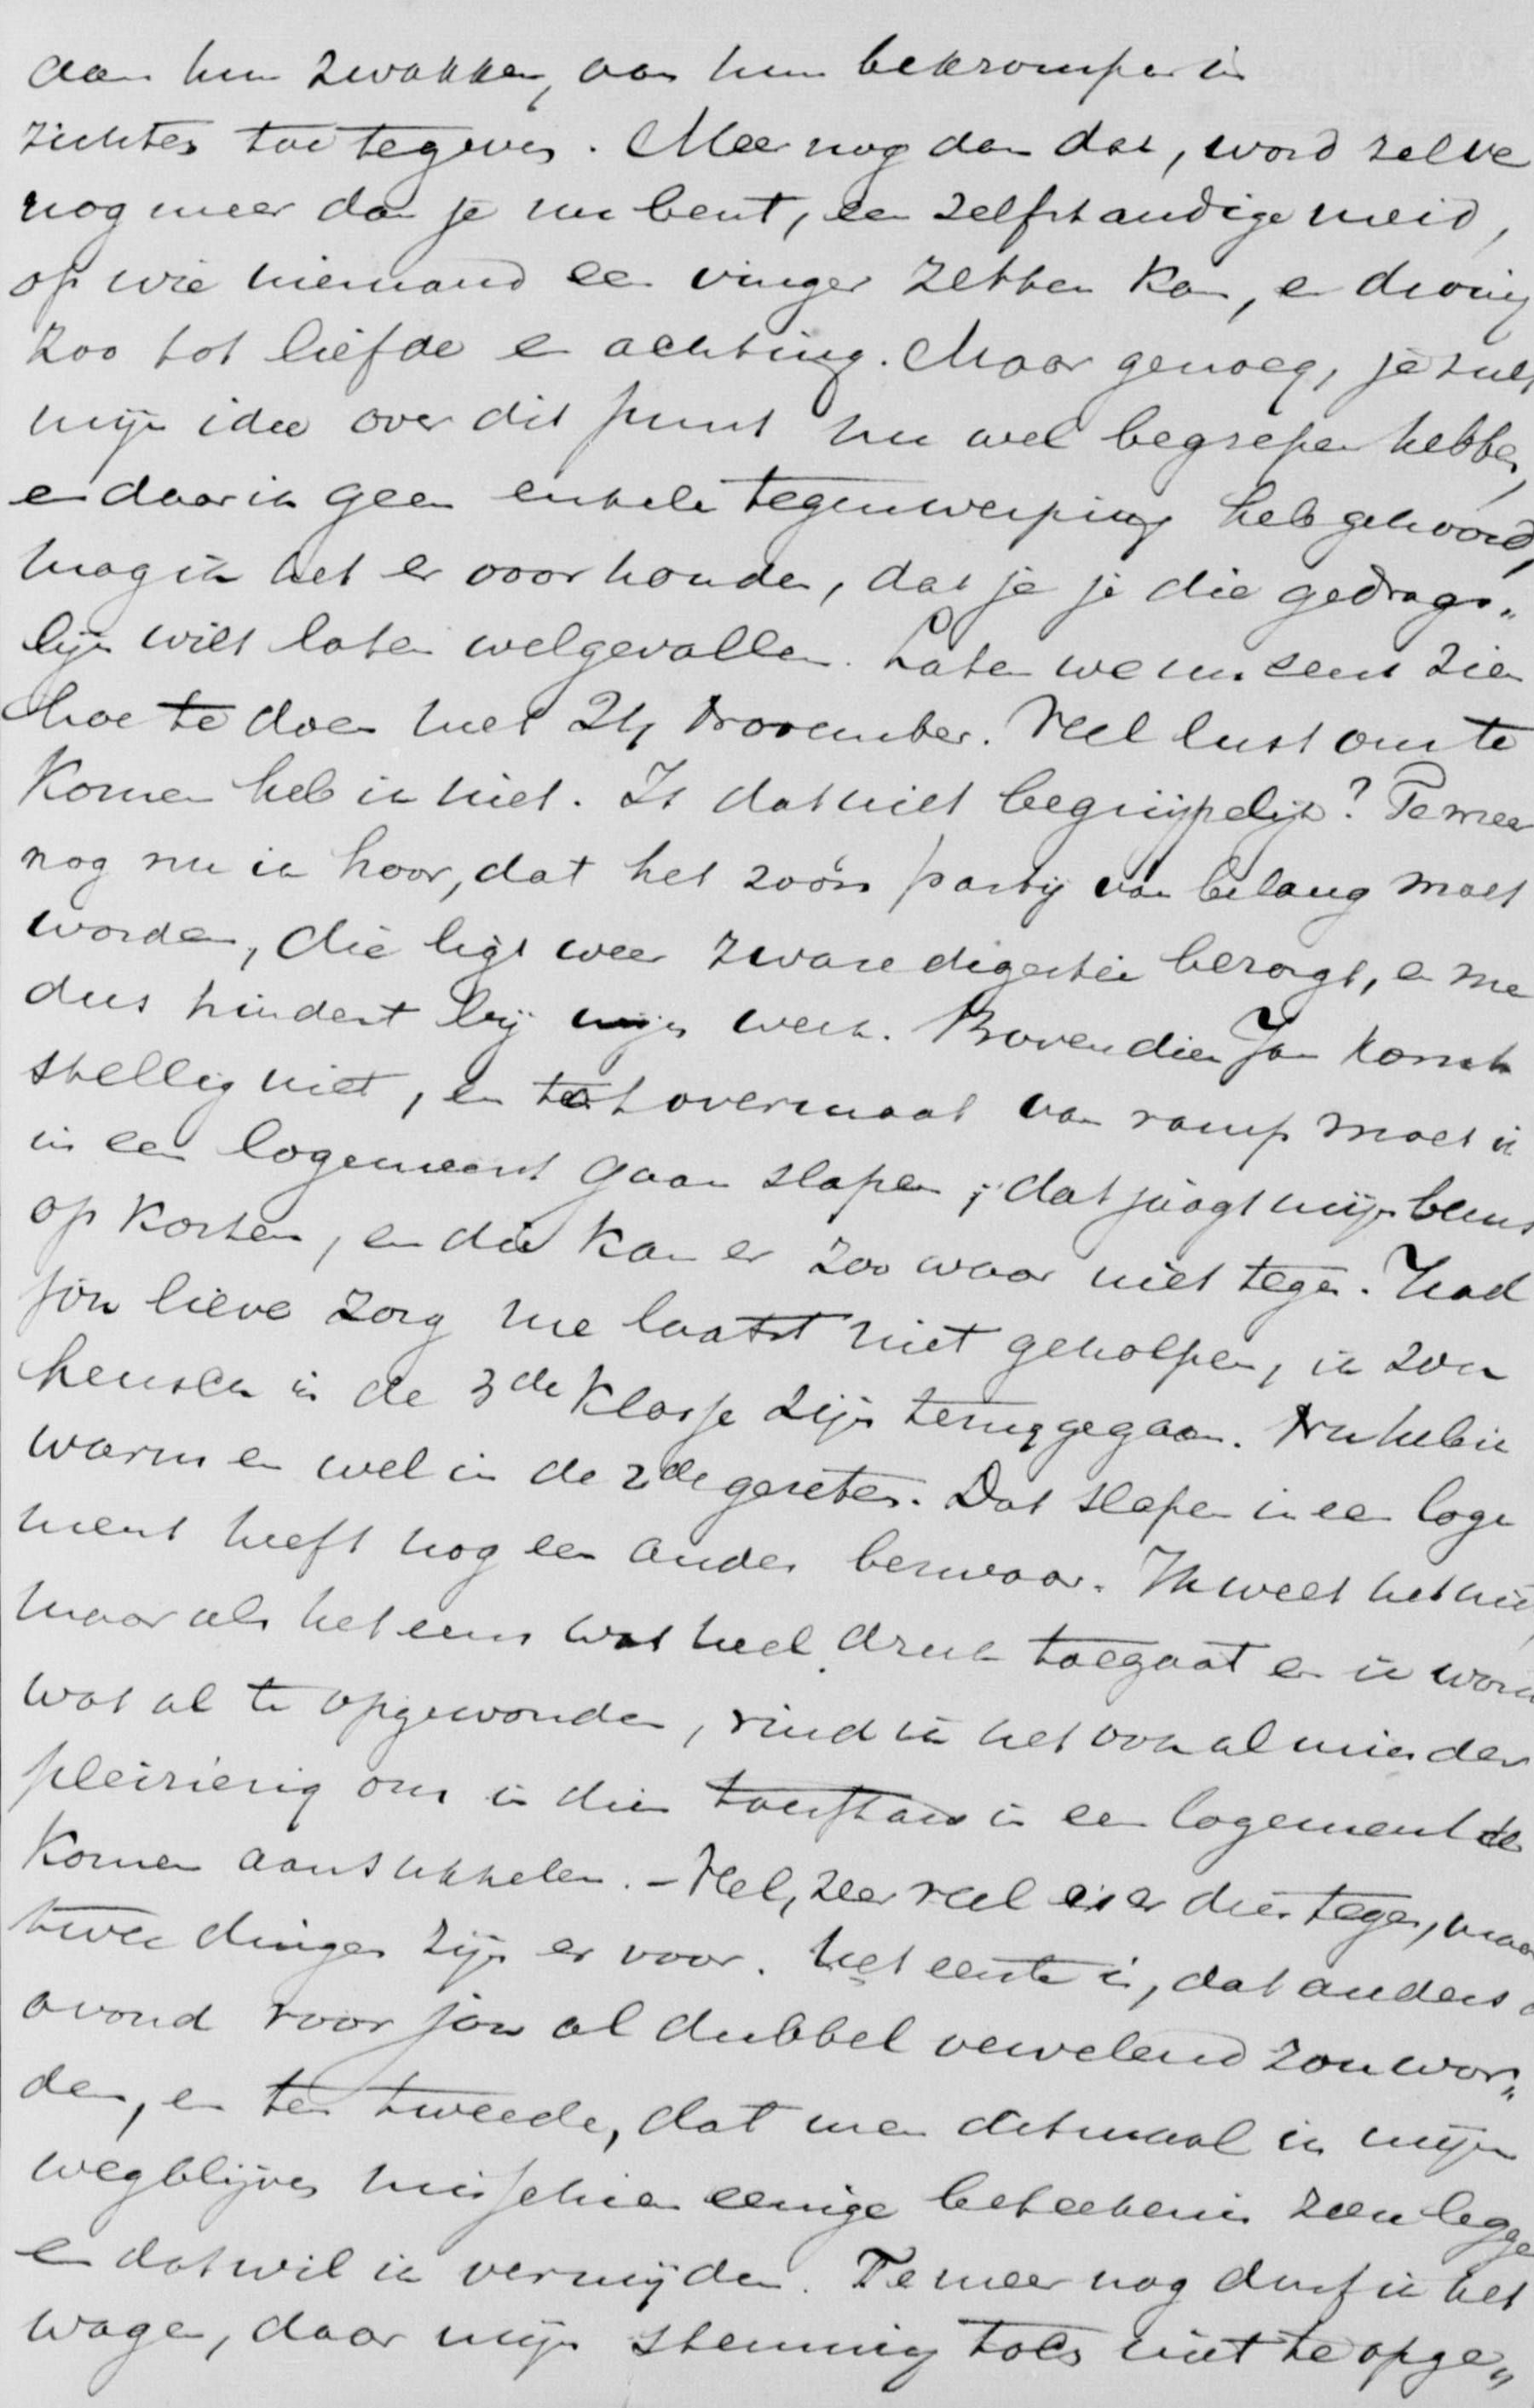 aan hun zwakken, aan hun bekrompen in
zichten toe te geven. Meer nog dan dat, word zelve
nog meer dan je nu bent, een zelfstandige meid,
op wie niemand een vinger zetten kan, en dwing
zoo tot liefde en achting. Maar genoeg, je zult
mijn idee over dit punt nu wel begrepen hebben,
en daar ik geen enkele tegenwerping heb gehoord,
mag ik het er voor houden, dat je je die gedrags„
lijn wilt laten welgevallen. Laten we nu eens zien
hoe te doen met 24 November. Veel lust om te
komen heb ik niet. Is dat niet begrijpelijk? Te meer
nog nu ik hoor, dat het zoo'n partij van belang moet
worden, die ligt weer zware digestie bezorgt, en me
dus hindert bij mijn werk. Bovendien Jan komt
stellig niet, en tot overmaat van ramp moet ik
in een logement gaan slapen; dat jaagt mijn beurs
op kosten, en die kan er zoo waar niet tegen. Had
jou lieve zorg me laatst niet geholpen, ik zou
heusch in de 3de klasse zijn teruggegaan. Nu heb ik
warm en wel in de 2de gezeten. Dat slapen in een loge
ment heeft nog een ander bezwaar. Ik weet het niet,
maar als het eens wat heel druk toegaat en ik word
wat al te opgewonden, vind ik het ook al minder
pleizierig om in dien toestand in een logement te
komen aansukkelen. – Veel, zeer veel is er dus tegen, maar
twee dingen zijn er voor. Het eerste is, dat anders d
avond voor jou al dubbel vervelend zou wor„
den, en ten tweede, dat men ditmaal in mijn
wegblijven misschien eenige beteekenis zou legge
en dat wil ik vermijden. Te meer nog durf ik het
wagen, daar mijn stemming toch niet te opge„